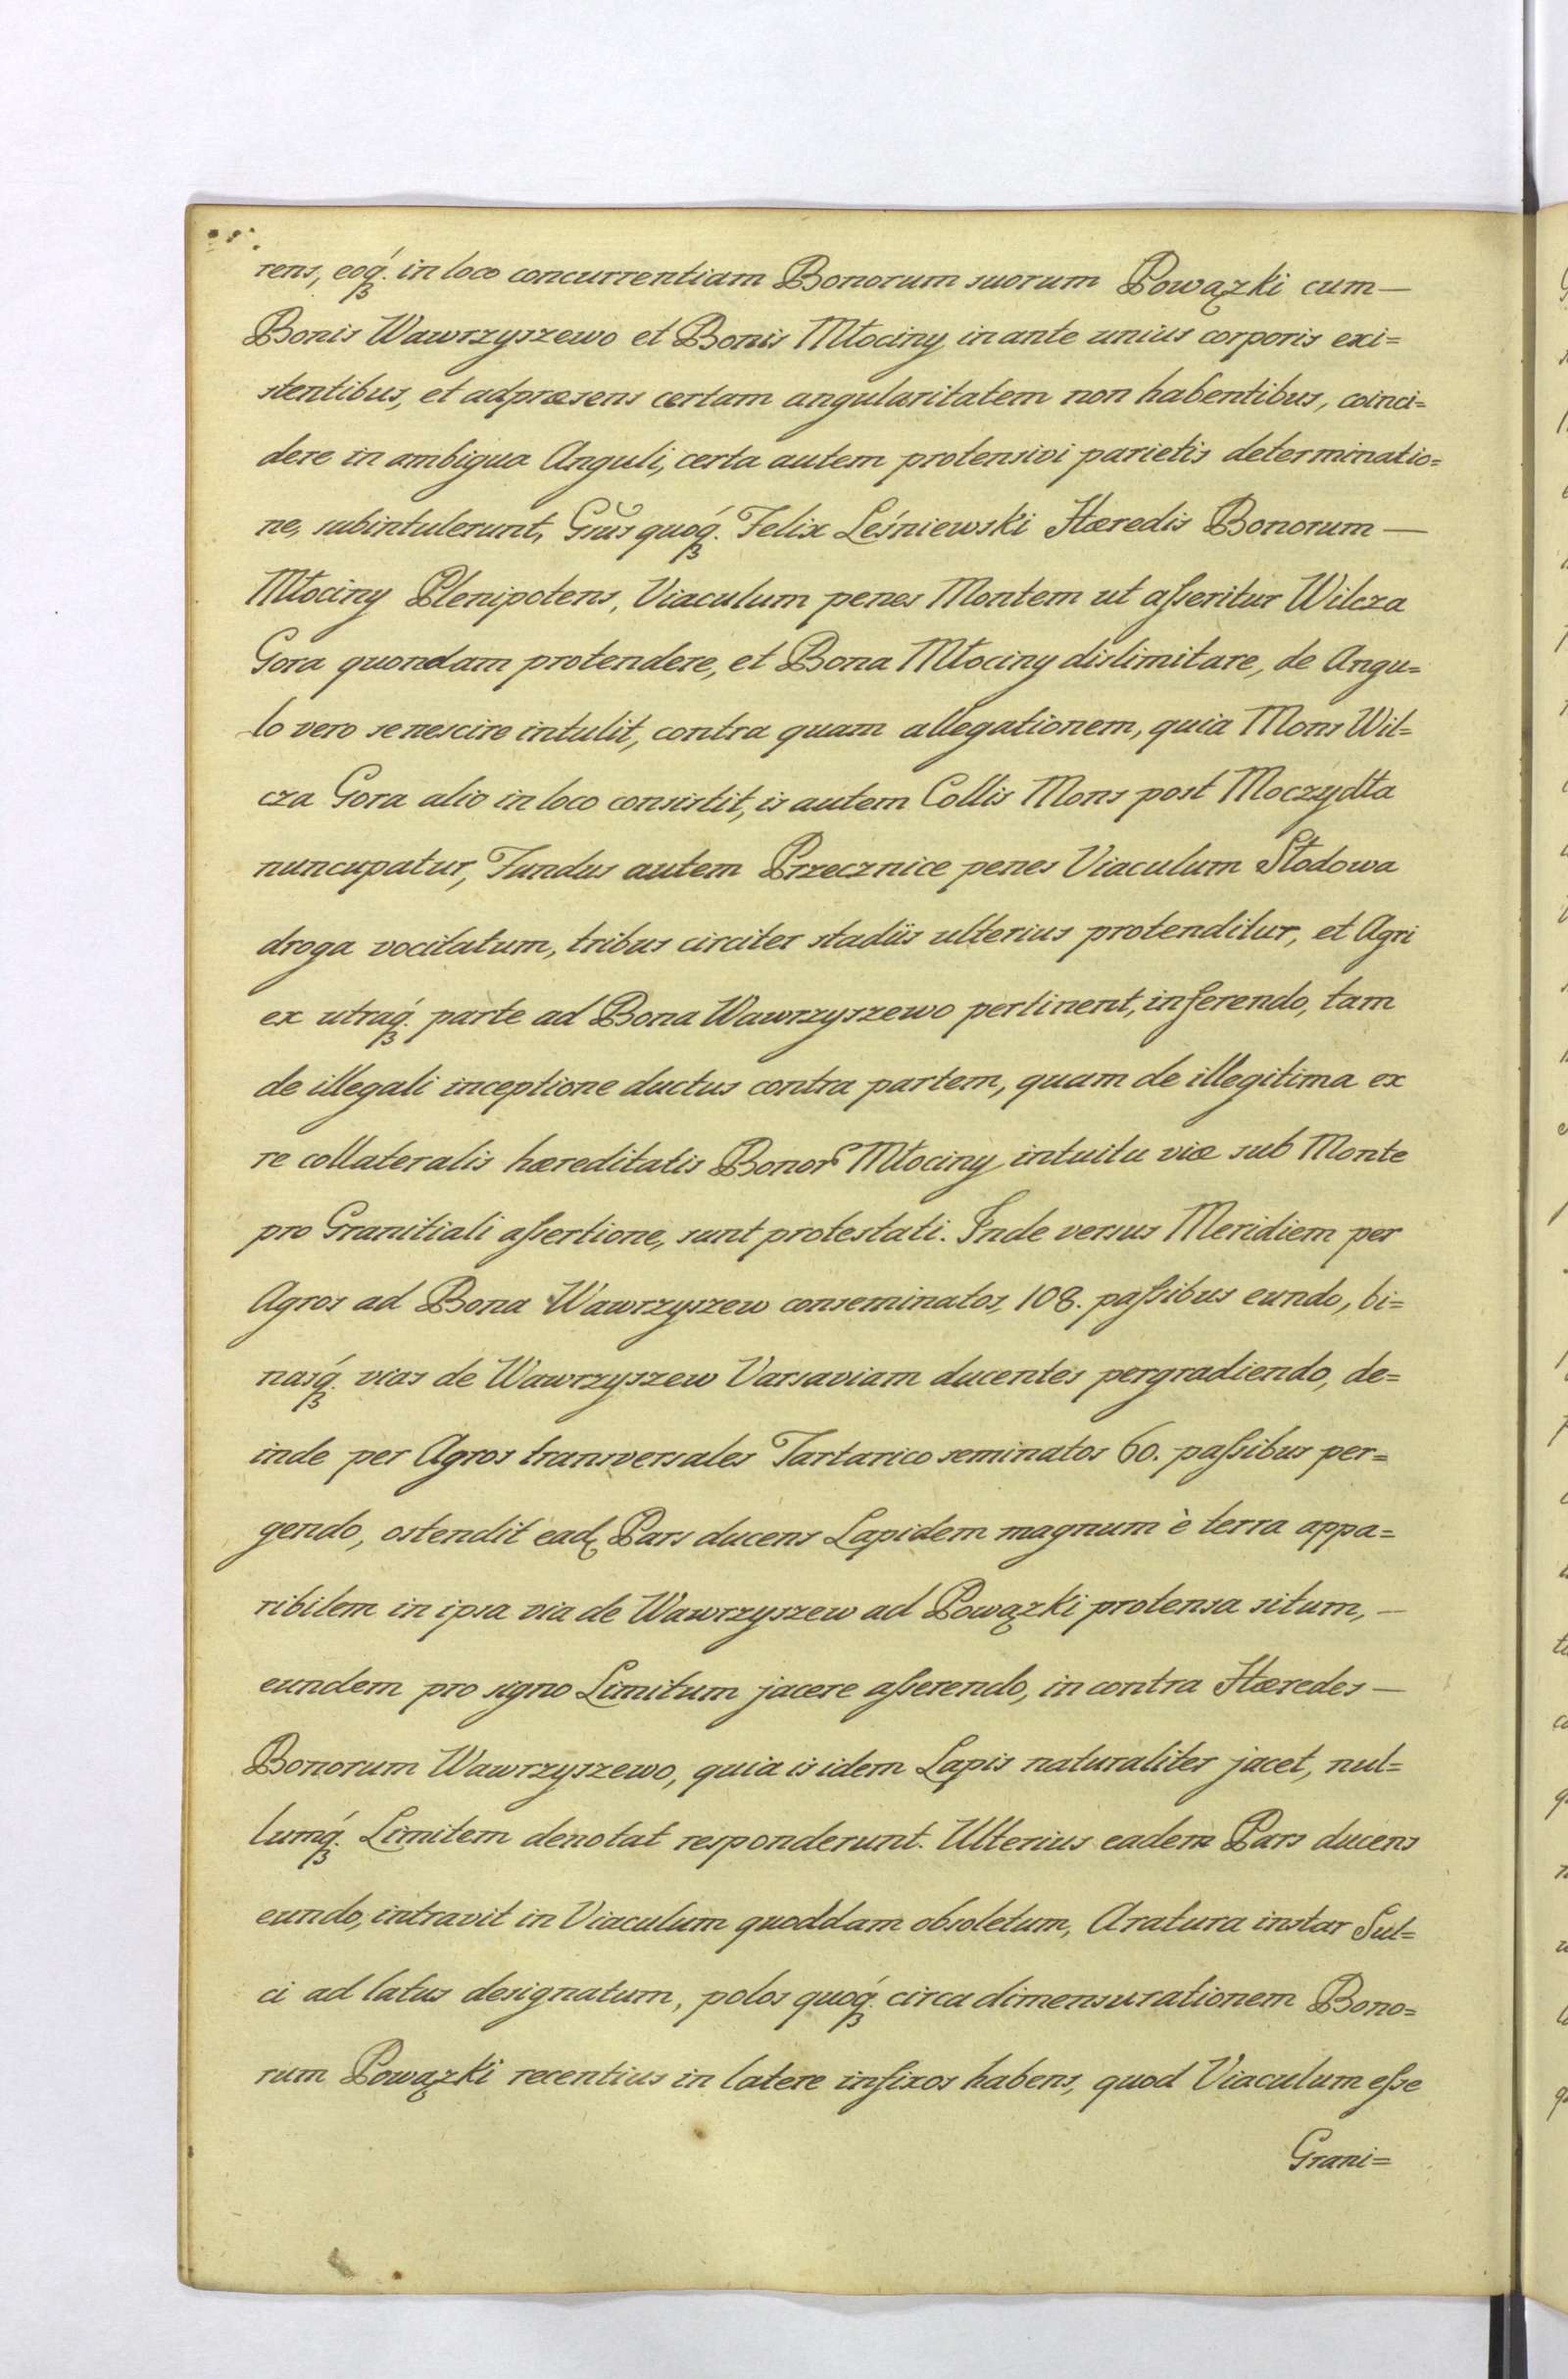 rens, eoq́ꝫ. in loco concurrentiam Bonorum suorum Powązki cum —
Bonis Wawrzyszewo et Bonis Młociny in ante unius corporis exi=
stentibus, et adpræsens certam angularitatem non habentibus, coinci=
dere in ambigua Anguli, certa autem protensivi parietis determinatio=
ne, subintulerunt, Grũs quoq́ꝫ. Felix Leśniewski Hæredis Bonorum —
Młociny Plenipotens, Viaculum penes Montem ut aſseritur Wilcza
Gora quondam protendere, et Bona Młociny dislimitare, de Angu=
lo vero se nescire intulit, contra quam allegationem, quia Mons Wil=
cza Gora alio in loco consistit, is autem Collis Mons post Moczydła
nuncupatur, Fundus autem Przecznice penes Viaculum Słodowa
droga vocitatum, tribus circiter stadiis ulterius protenditur, et Agri
ex utraq́ꝫ. parte ad Bona Wawrzyszewo pertinent, inferendo, tam
de illegali inceptione ductus contra partem, quam de illegitima ex
re collateralis hæreditatis Bonor Młociny intuitu viæ sub Monte
pro Granitiali aſsertione, sunt protestati. Inde versus Meridiem per
Agros ad Bona Wawrzyszew conseminatos, 108. paſsibus eundo, bi=
nasq́ꝫ. vias de Wawrzyszew Varsaviam ducentes pergradiendo, de=
inde per Agros transversales Tartarico seminatos 60. paſsibus per=
gendo, ostendit ead. Pars ducens Lapidem magnum è terra appa=
ribilem in ipsa via de Wawrzyszew ad Powązki protensa situm, —
eundem pro signo Limitum jacere aſserendo, in contra Hæredes —
Bonorum Wawrzyszewo, quia is idem Lapis naturaliter jacet, nul=
lumq́ꝫ. Limitem denotat responderunt. Ulterius eadem Pars ducens
eundo, intravit in Viaculum quoddam obsoletum, Aratura instar Sul=
ci ad latus designatum, polos quoq́ꝫ. circa dimensurationem Bono=
rum Powązki recentius in latere infixos habens, quod Viaculum eſse
Grani=